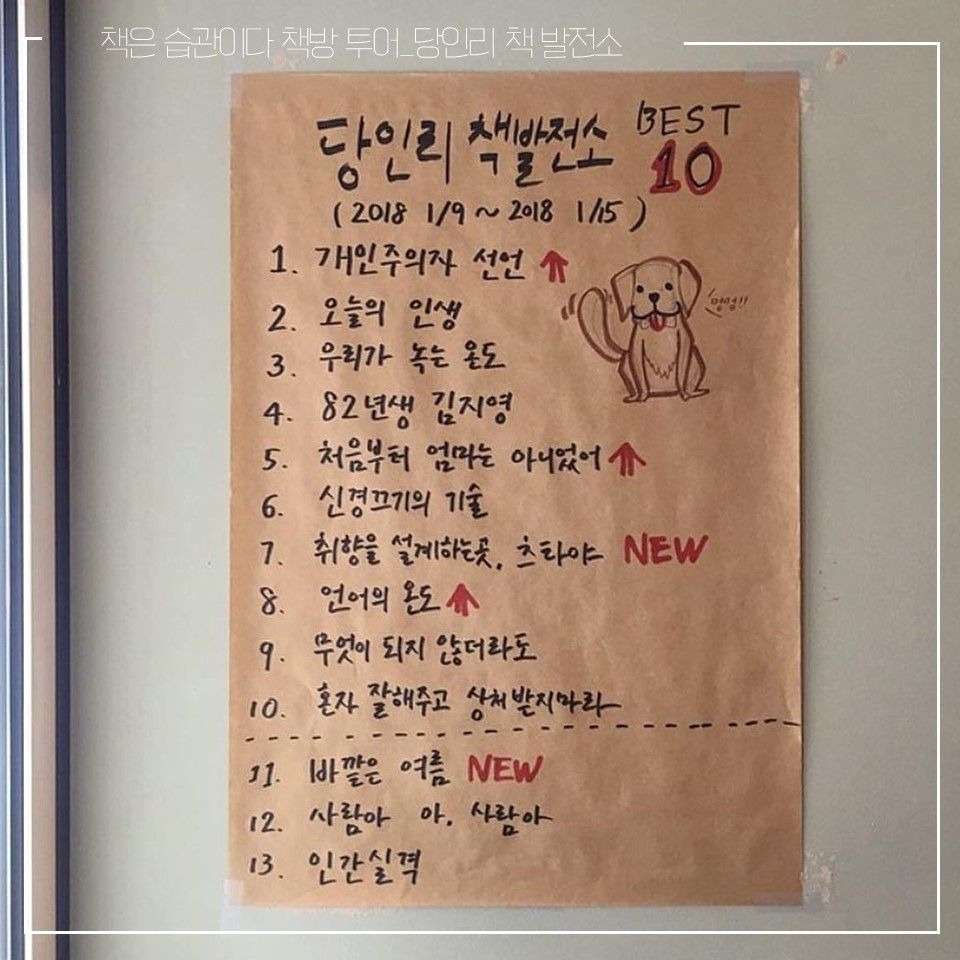 책은 습관이다 책방 투어_당인리 책 발전소
당인리 책발전소 BEST 10
(2018 1/9 ~ 2018 1/15)
1. 개인주의자 선언
2. 오늘의 인생
3. 우리가 녹는 온도
멍멍!!
4. 82년생 김지영
5. 처음부터 엄마는 아니었어
6. 신경끄기의 기술
7. 취향을 설계하는곳, 츠타야 NEW
8. 언어의 온도
9. 무엇이 되지 않더라도
10. 혼자 잘해주고 상처받지마라
11. 바깥은 여름 NEW
12. 사람아 아, 사람아
13. 인간실격